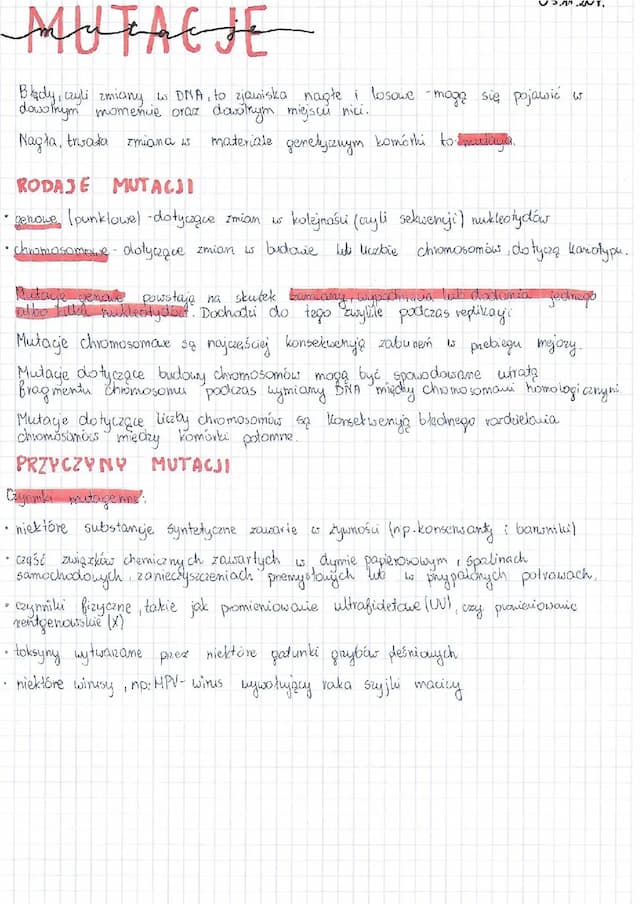 MUTACJE
mutacje
Błędy, czyli zmiany w DNA, to zjawiska nagłe i losowe - mogą się pojawić w
dowolnym momencie oraz dowolnym miejscu nici.
Nagła, trwała zmiana w materiale genetycznym komórki to mutacja.
RODAJE MUTACJI
• genowe (punktowe) - dotyczące zmian w kolejności (czyli sekwencji) nukleotydów
• chromosomowe - dotyczące zmian w budowie lub liczbie chromosomów, dotyczą kariotypu.
Mutacje genowe powstają na skutek zamiany, wypadnięcia lub dodania jednego
albo kilku nukleotydów. Dochodzi do tego zwykle podczas replikacji
Mutacje chromosomowe są najczęściej konsekwencją zaburzeń w przebiegu mejozy.
Mutacje dotyczące budowy chromosomów mogą być spowodowane utratą
fragmentu chromosomu podczas wymiany DNA między chromosomami homologicznymi
Mutacje dotyczące liczby chromosomów są konsekwencją błędnego rozdzielania
chromosomów między komórki potomne.
PRZYCZYNY MUTACJI
Czynniki mutagenne:
• niektóre substancje syntetyczne zawarte w żywności (np. konserwanty i barwniki)
• część związków chemicznych zawartych w dymie papierosowym, spalinach
samochodowych, zanieczyszczeniach przemysłowych lub w przypalonych potrawach.
• czynniki fizyczne, takie jak promieniowanie ultrafioletowe (UV), czy promieniowanie
rentgenowskie (X)
• toksyny wytwarzane przez niektóre gatunki grzybów pleśniowych
• niektóre wirusy, np: HPV - wirus wywołujący raka szyjki macicy